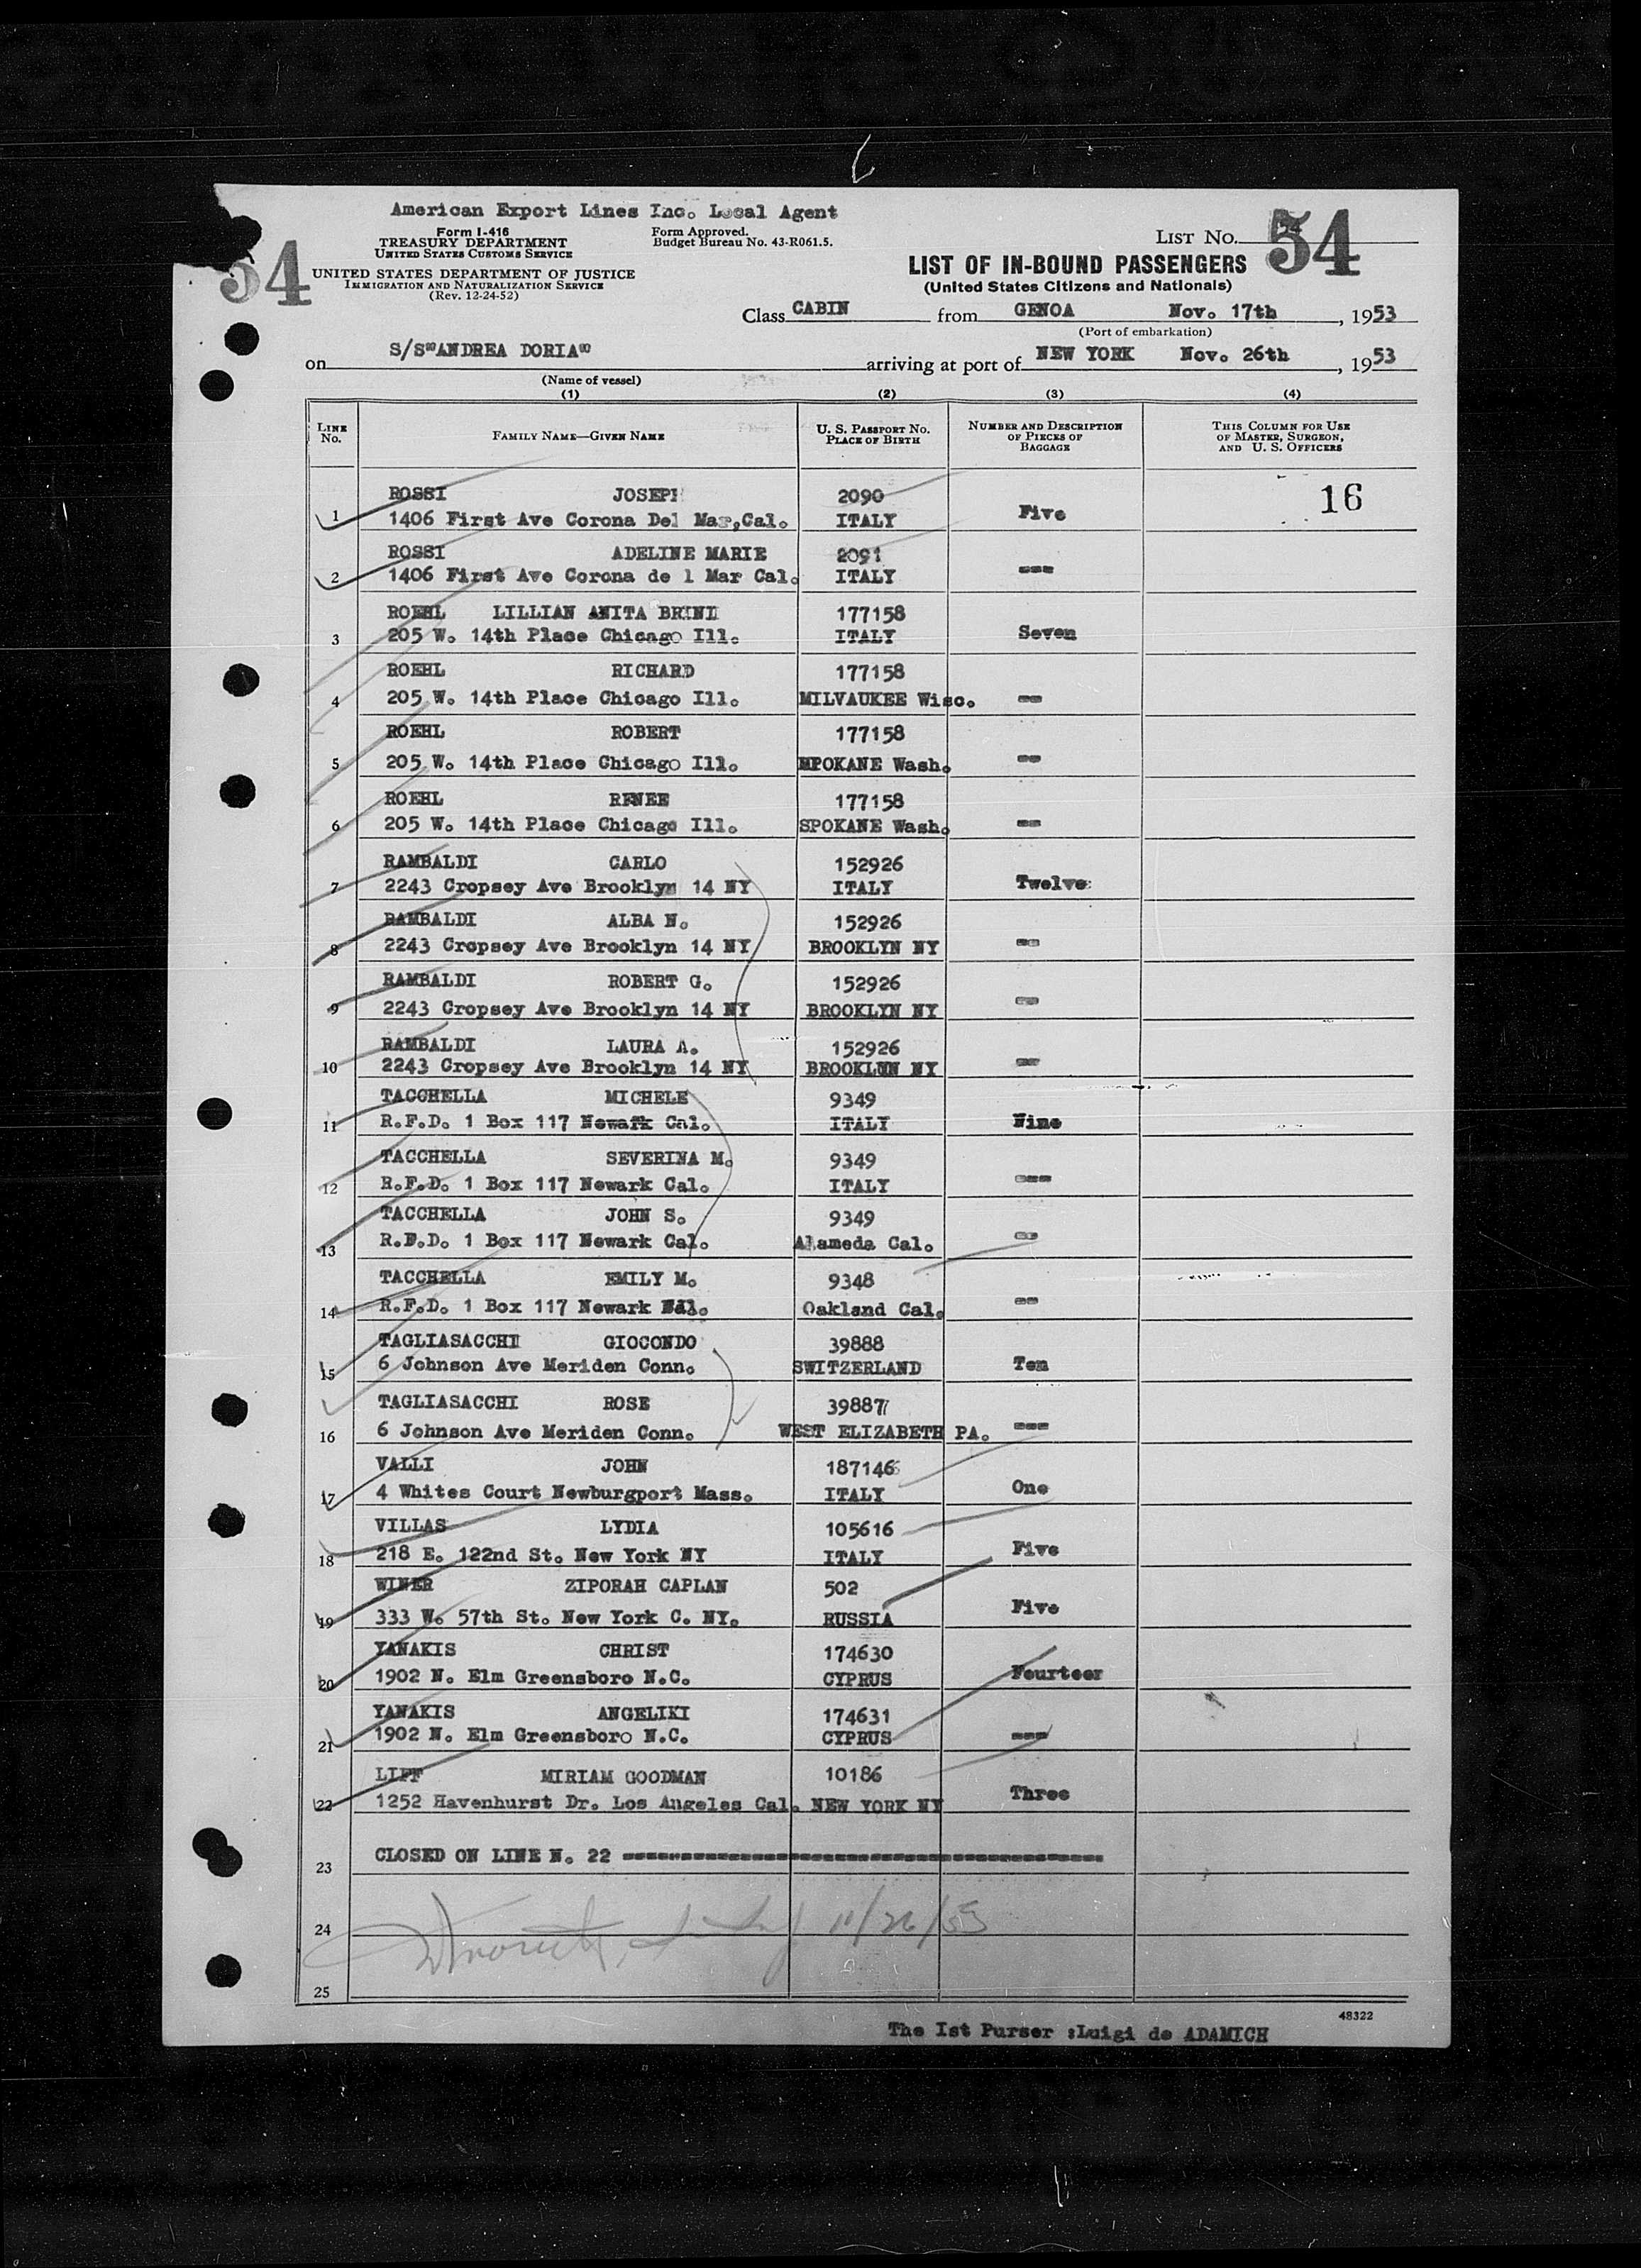 American Export Lines Inc. Local Agent
Form I-416
TREASURY DEPARTMENT
UNITED STATES CUSTOMS SERVICE
UNITED STATES DEPARTMENT OF JUSTICE
IMMIGRATION AND NATURALIZATION SERVICE
(Rev. 12-24-52)
Form Approved.
Budget Bureau No. 43-R061.5.
LIST NO. 54
54
LIST OF IN-BOUND PASSENGERS
(United States Citizens and Nationals)
Class CABIN from GENOA Nov. 17th, 1953
(Port of embarkation)
on S/S"ANDREA DORIA" arriving at port of NEW YORK Nov. 26th, 1953
(Name of vessel)
(1) (2) (3) (4)
LINE NO. FAMILY NAME—GIVEN NAME U. S. PASSPORT NO. PLACE OF BIRTH NUMBER AND DESCRIPTION OF PIECES OF BAGGAGE THIS COLUMN FOR USE OF MASTER, SURGEON, AND U. S. OFFICERS
ROSSI JOSEPH 2090 16
1 1406 First Ave Corona Del Mar,Cal. ITALY Five
ROSSI ADELINE MARIE 2091
2 1406 First Ave Corona de l Mar Cal. ITALY ---
ROEHL LILLIAN ANITA BRINI 177158
3 205 W. 14th Place Chicago Ill. ITALY Seven
ROEHL RICHARD 177158
4 205 W. 14th Place Chicago Ill. MILVAUKEE Wisc. --
ROEHL ROBERT 177158
5 205 W. 14th Place Chicago Ill. SPOKANE Wash. --
ROEHL RENEE 177158
6 205 W. 14th Place Chicago Ill. SPOKANE Wash. --
RAMBALDI CARLO 152926
7 2243 Cropsey Ave Brooklyn 14 NY ITALY Twelve
RAMBALDI ALBA N. 152926
8 2243 Cropsey Ave Brooklyn 14 NY BROOKLYN NY --
RAMBALDI ROBERT G. 152926
9 2243 Cropsey Ave Brooklyn 14 NY BROOKLYN NY --
RAMBALDI LAURA A. 152926
10 2243 Cropsey Ave Brooklyn 14 NY BROOKLYN NY --
TACCHELLA MICHELE 9349
11 R.F.D. 1 Box 117 Newark Cal. ITALY Nine
TACCHELLA SEVERINA M. 9349
12 R.F.D. 1 Box 117 Newark Cal. ITALY ---
TACCHELLA JOHN S. 9349
13 R.F.D. 1 Box 117 Newark Cal. Alameda Cal. --
TACCHELLA EMILY M. 9348
14 R.F.D. 1 Box 117 Newark Cal. Oakland Cal. --
TAGLIASACCHI GIOCONDO 39888
15 6 Johnson Ave Meriden Conn. SWITZERLAND Ten
TAGLIASACCHI ROSE 39887
16 6 Johnson Ave Meriden Conn. WEST ELIZABETH PA. ---
VALLI JOHN 187146
17 4 Whites Court Newburgport Mass. ITALY One
VILLAS LYDIA 105616
18 218 E. 122nd St. New York NY ITALY Five
WINER ZIPORAH CAPLAN 502
19 333 W. 57th St. New York C. NY. RUSSIA Five
YANAKIS CHRIST 174630
20 1902 N. Elm Greensboro N.C. CYPRUS Fourteer
YANAKIS ANGELIKI 174631
21 1902 N. Elm Greensboro N.C. CYPRUS ---
LIFF MIRIAM GOODMAN 10186
22 1252 Havenhurst Dr. Los Angeles Cal. NEW YORK NY Three
23 CLOSED ON LINE N. 22 --------------------
24 11/26/53
25
48322
The Ist Purser :Luigi de ADAMICH